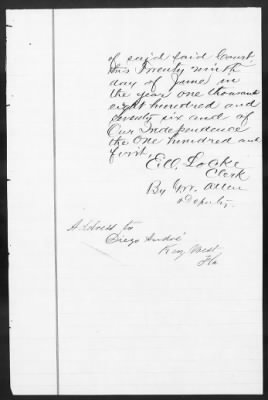 of said said Court
this Twenty ninth
day of June in
the year one thousand
eight hundred and
seventy six and of
Our Independence
the One hundred and
first,
E.O. Locke
Clerk
By Geo. Allen
Deputy.
Address to
Diego André
Key West
Fla